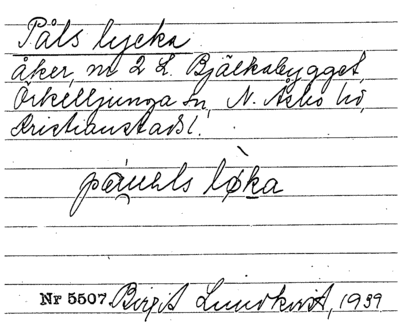 Påls lycka
åker, nr 2 L. Bjälkabygget,
Örkelljunga sn, N. Åsbo hd,
Kristianstads l.
løka
Nr 5507 Birgit Lundkvist, 1939